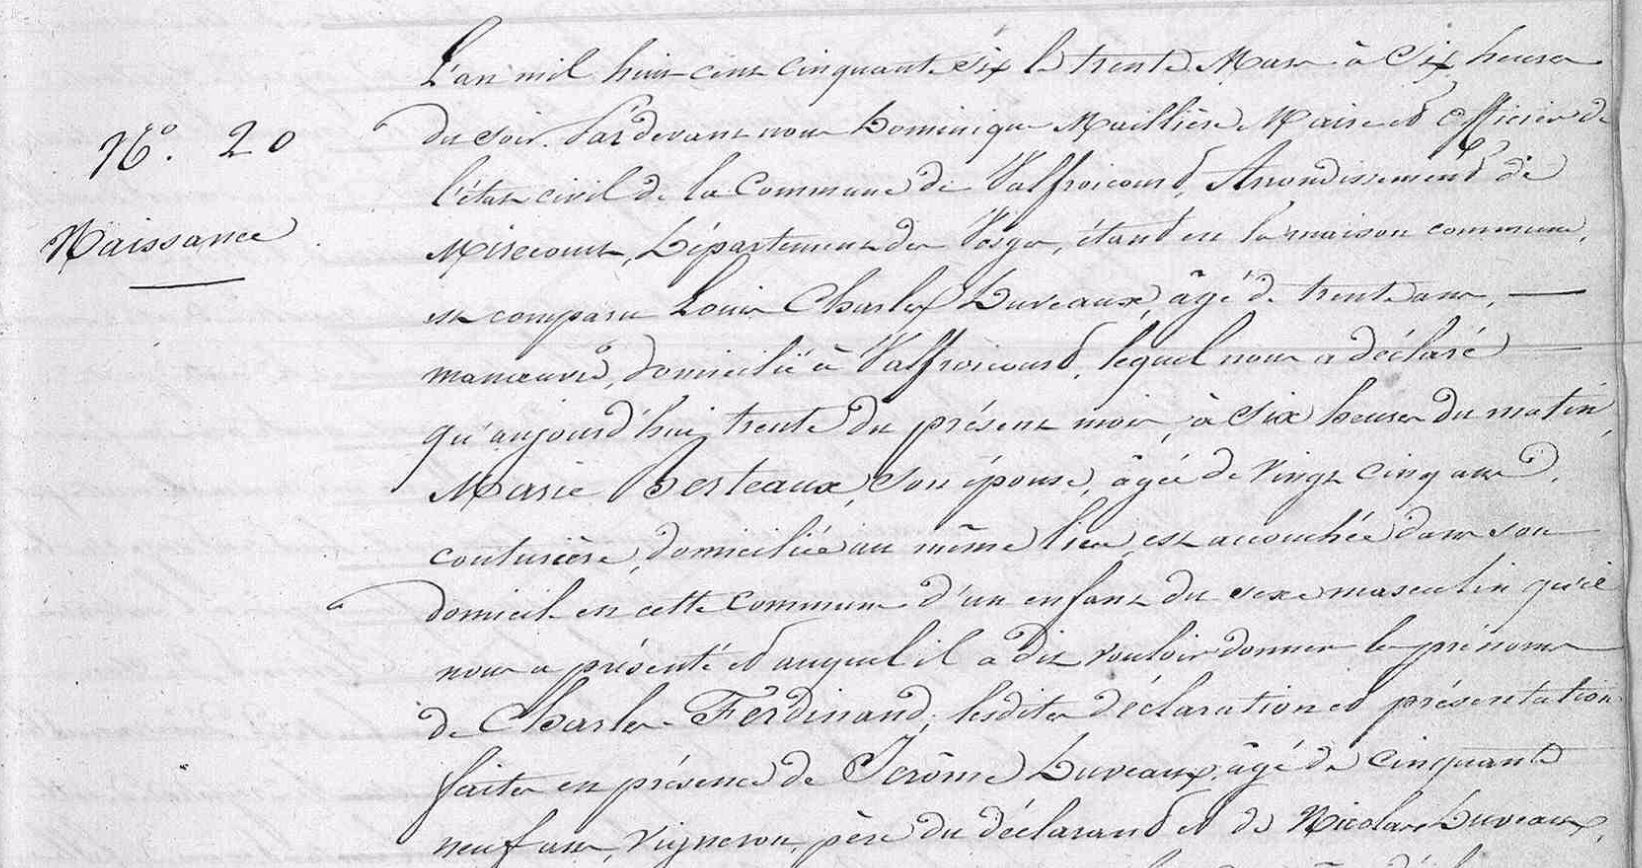 N°. 20
Naissance
L'an mil huit cent cinquante six le trente Mars à Six heures
du soir. Pardevant nous Dominique Maillière Maire et Officier de
l'état civil de la Commune de Valfroicourt, Arrondissement de
Mirecourt, Département des Vosges, étant en la maison commune,
est comparu Louis Charles Duveaux, âgé de trente ans, —
manœuvre, domicilié à Valfroicourt, lequel nous a déclaré —
qu'aujourd'hui trente du présent mois, à Six heures du matin,
Marie Berteaux, Son épouse, âgée de vingt cinq ans,
couturière, domiciliée au même lieu est accouchée dans son
domicile en cette Commune d'un enfant du sexe masculin qu'il
nous a présenté et auquel il a dit vouloir donner les prénoms
de Charles-Ferdinand; lesdites déclaration et présentation
faites en présence de Jérôme Duveaux, âgé de cinquante
neuf ans, vigneron, père du déclarant et de Nicolas Duveaux,